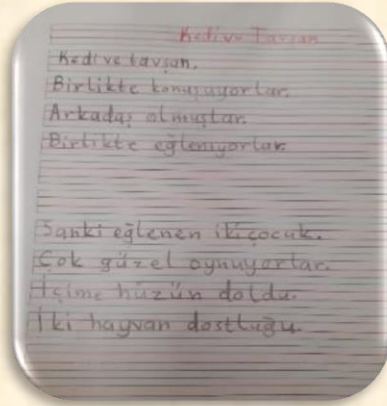 Kedi ve Tavşan
Kedi ve tavşan.
Birlikte konuşuyorlar.
Arkadaş olmuşlar.
Birlikte eğleniyorlar.
Sanki eğlenen iki çocuk.
Çok güzel oynuyorlar.
İçime hüzün doldu.
İki hayvan dostluğu.